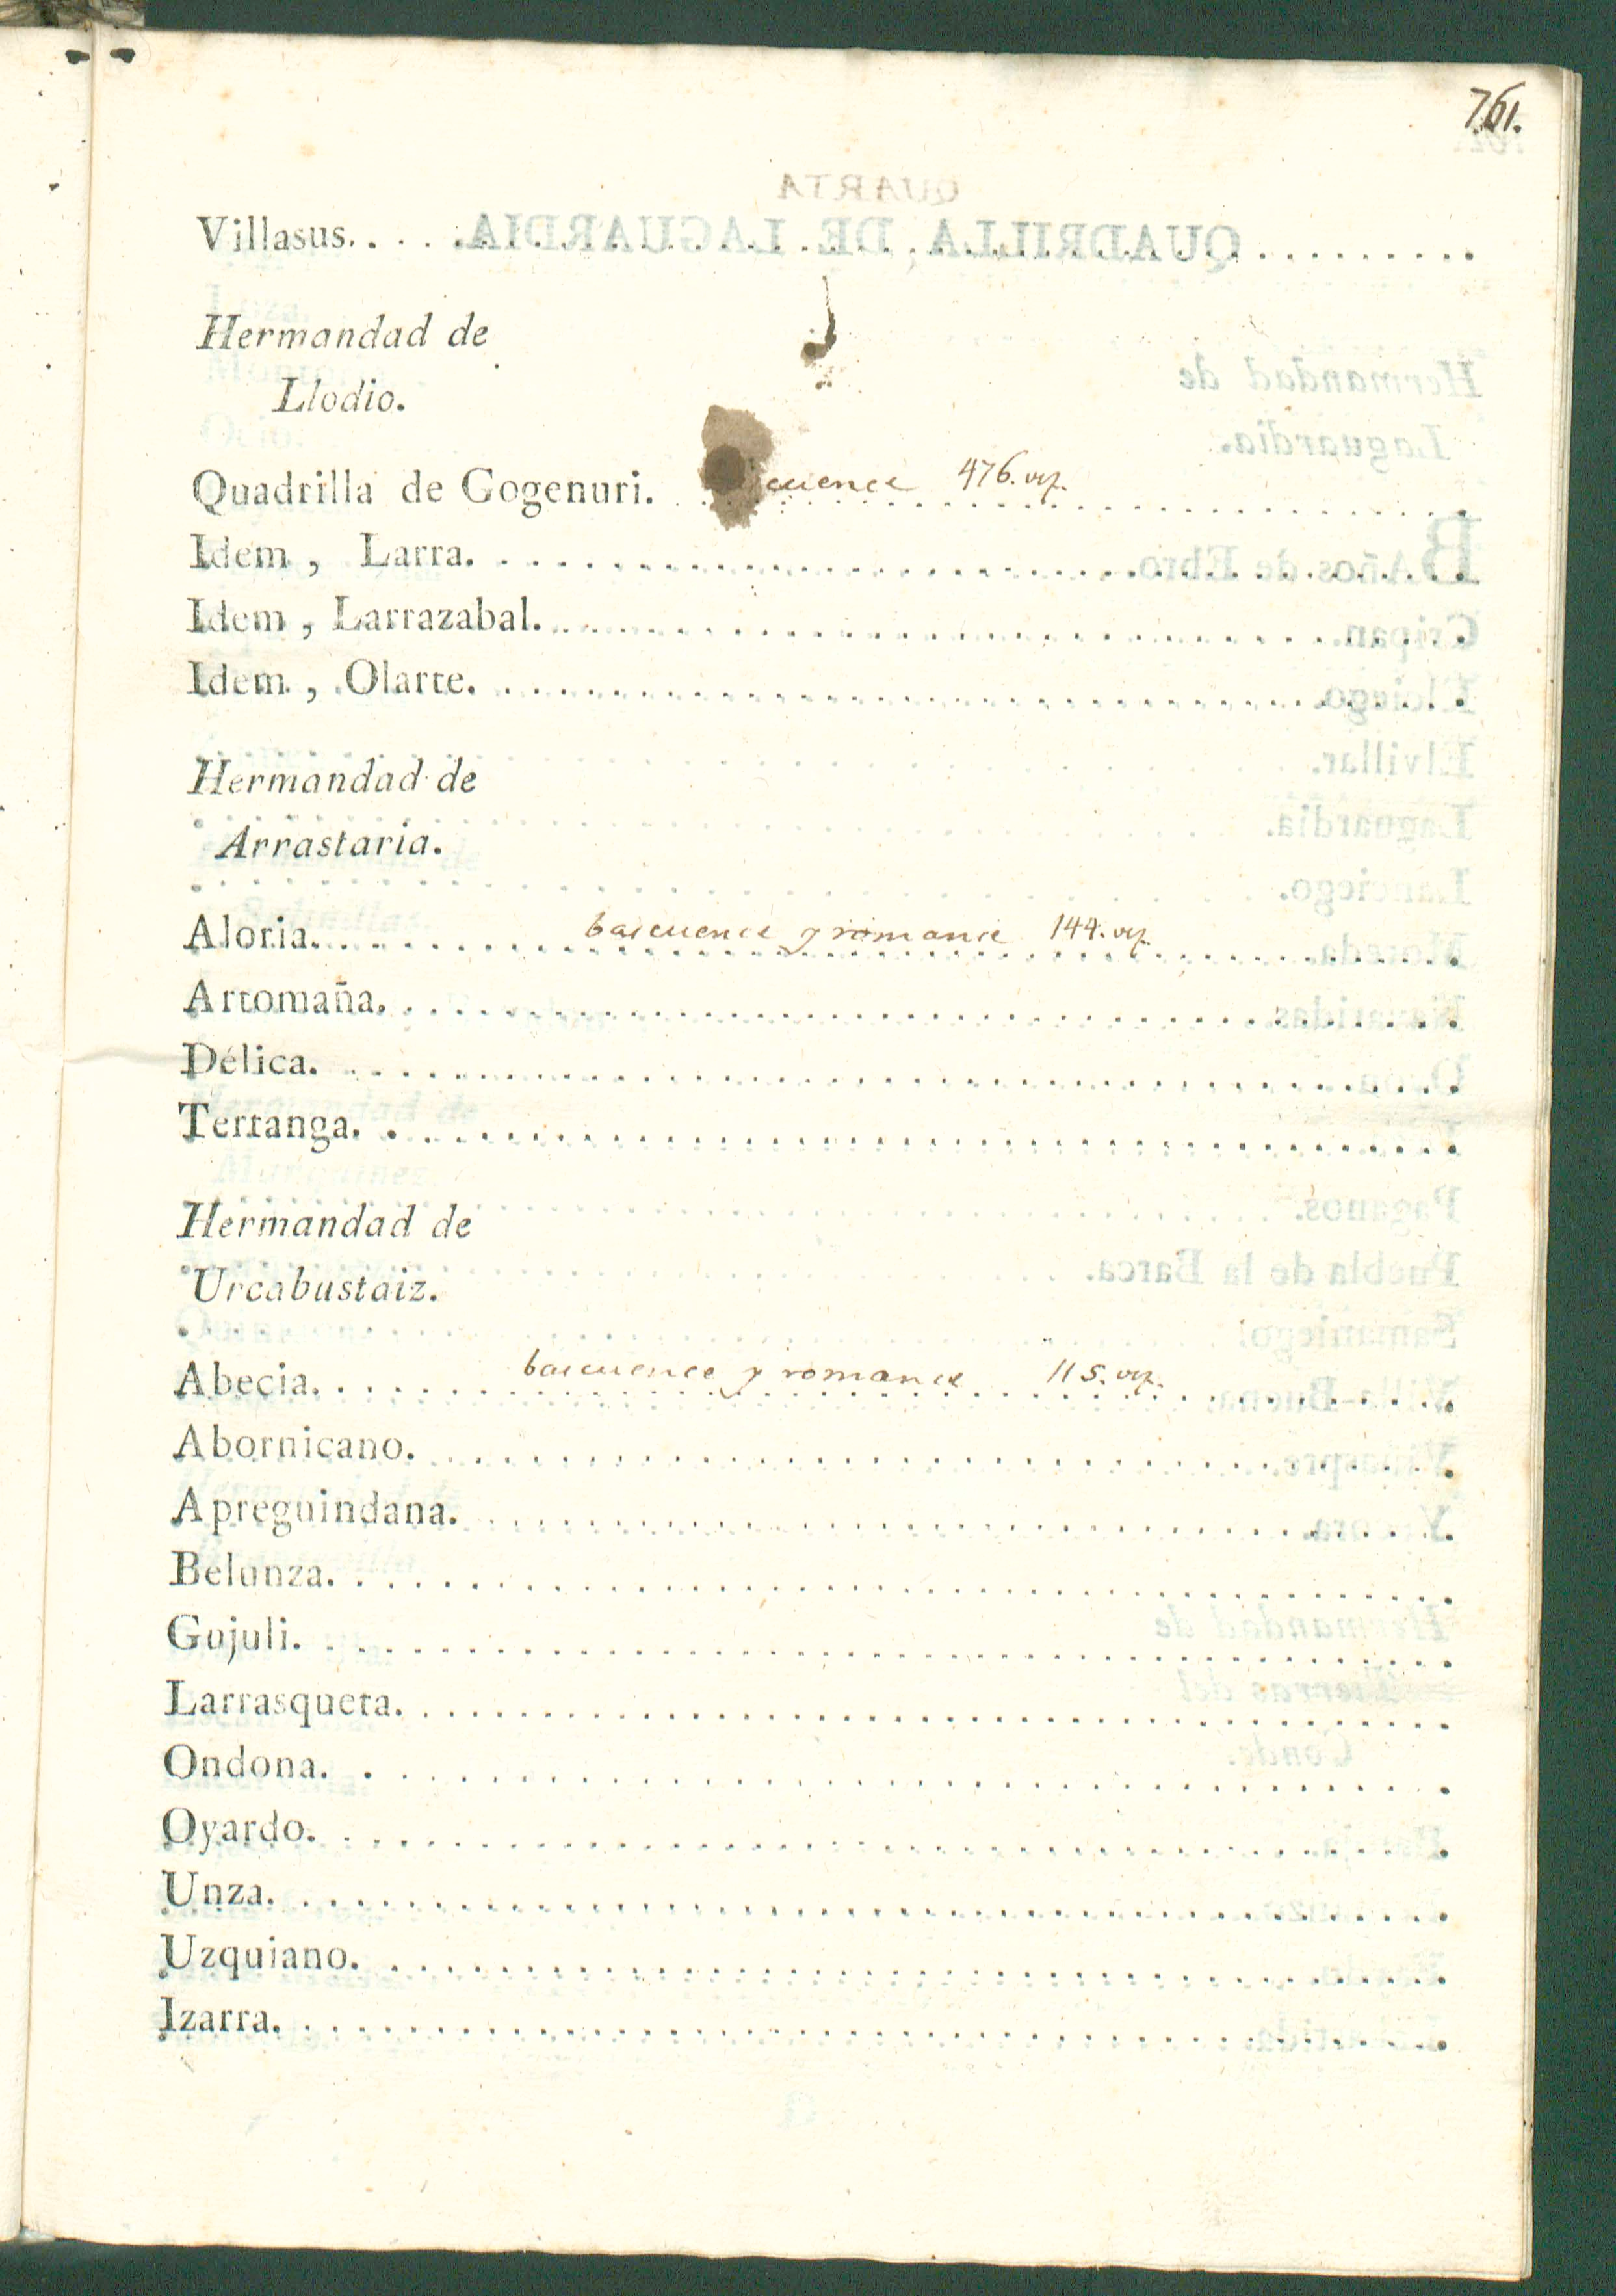 761.
Villasus.
Hermandad de
Llodio.
Quadrilla de Gogenuri. cuence 476. vez.
Idem, Larra.
Idem, Larrazabal.
Idem, Olarte.
Hermandad de
Arrastaria.
Aloria. bascuence y romance 144. vez.
Artomaña.
Délica.
Tertanga.
Hermandad de
Urcabustaiz.
Abecia. bascuence y romance 115. vez.
Abornicano.
Apreguindana.
Belunza.
Gujuli.
Larrasqueta.
Ondona.
Oyardo.
Unza.
Uzquiano.
Izarra.